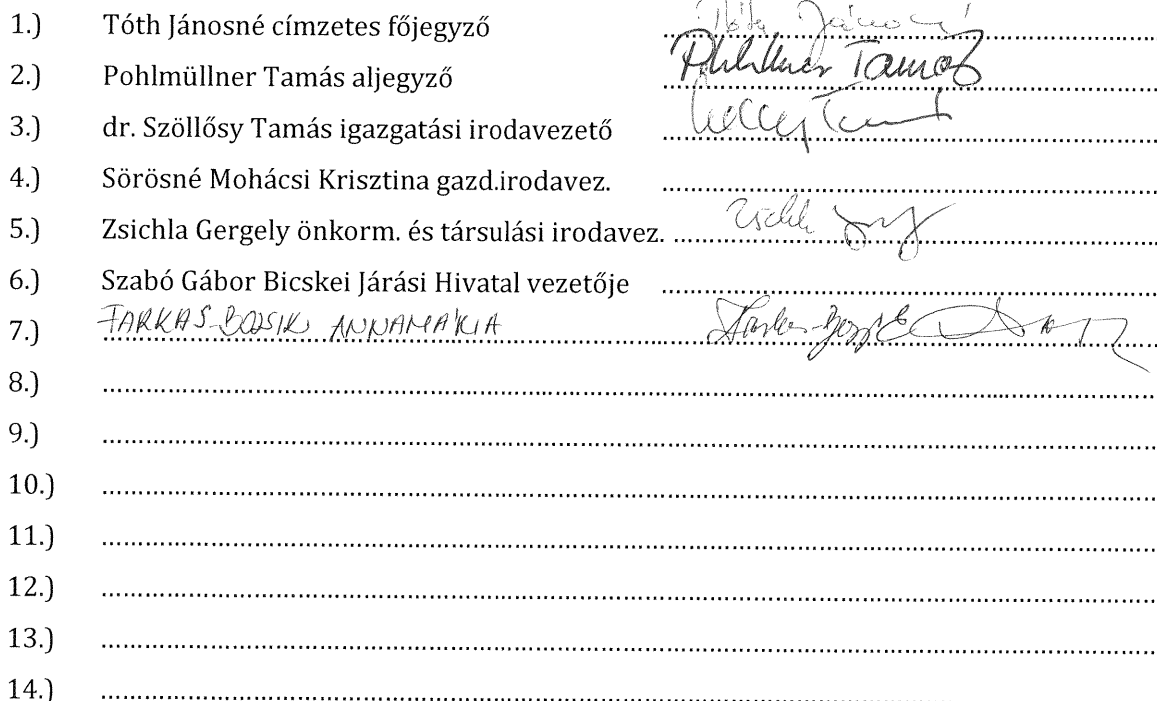 1.) Tóth Jánosné címzetes főjegyző Tóth Jánosné
2.) Pohlmüllner Tamás aljegyző Tamás
3.) dr. Szöllősy Tamás igazgatási irodavezető
4.) Sörösné Mohácsi Krisztina gazd.irodavez.
5.) Zsichla Gergely önkorm. és társulási irodavez.
6.) Szabó Gábor Bicskei Járási Hivatal vezetője
7.) FARKAS-BOZSIK ANNAMÁRIA
8.)
9.)
10.)
11.)
12.)
13.)
14.)